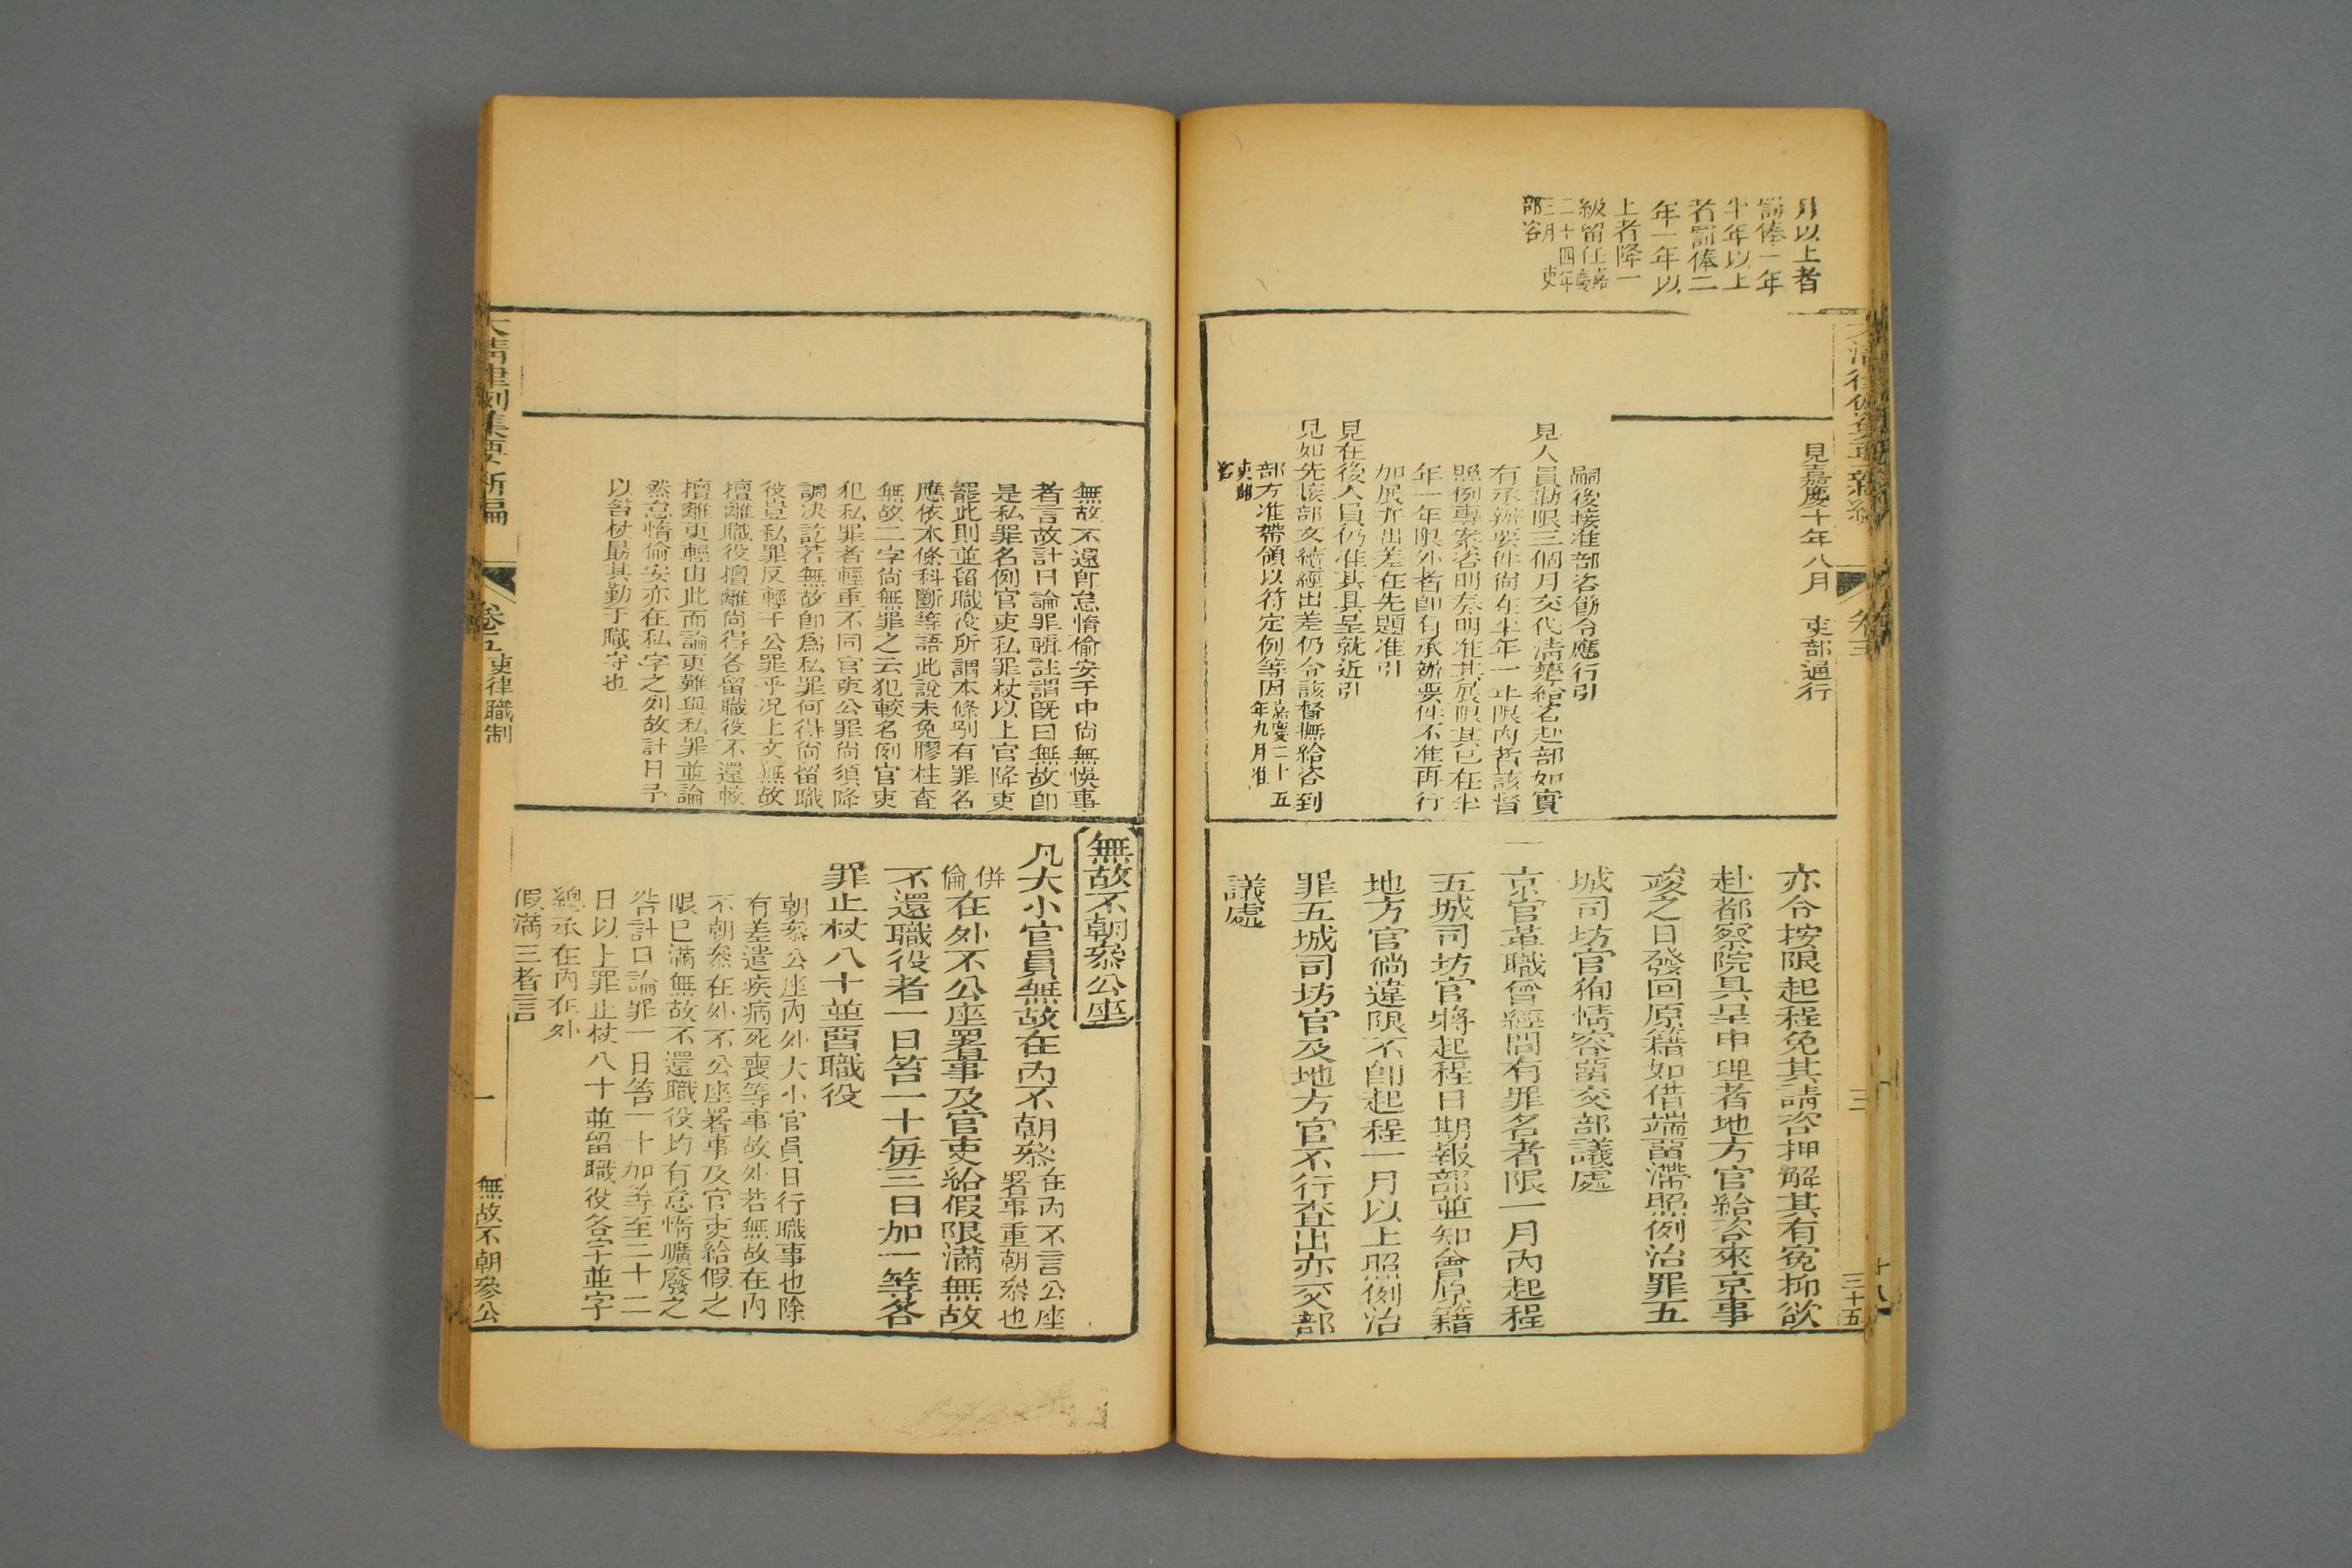 月以上者
罰俸一年
半年以上
者罰俸二
年一年以
上者降一
級留任嘉慶
二十四年
三月 吏
部咨
見嘉慶十年八月 吏部通行
嗣後接准部咨飭令應行引
見人員勒限三個月交代清楚給咨赴部如實
有承辦要件尚在半年一年限內者該督
照例專案咨明奏明准其展限其已在半
年一年限外者即有承辦要件不准再行
加展并出差在先題准引
見在後人員仍准其具呈就近引
見如先該部文續經出差仍令該督撫給咨到
部方准帶領以符定例等因嘉慶二十五年九月准
吏部咨
亦令按限起程免其請咨押解其有冤抑欲
赴都察院具呈申理者地方官給咨來京事
竣之日發回原籍如借端畱滯照例治罪五
城司坊官狥情容畱交部議處
一京官革職曾經問有罪名者限一月內起程
五城司坊官將起程日期報部並知會原籍
地方官倘違限不卽起程一月以上照例治
罪五城司坊官及地方官不行查出亦交部
議處
三十五
無故不還卽怠惰偷安于中尚無悞事
者言故計日論罪輯註謂旣曰無故卽
是私罪名例官吏私罪杖以上官降吏
罷此則並留職役所謂本條別有罪名
應依本條科斷等語此說未免膠柱查
無故二字尚無罪之云犯較名例官吏
犯私罪者輕重不同官吏公罪尚須降
調决訖若無故卽爲私罪何得尚留職
役豈私罪反輕于公罪乎况上文無故
擅離職役擅離尚得各留職役不還較
擅離更輕由此而論更難與私罪並論
然怠惰偷安亦在私字之列故計日予
以笞杖最其勤于職守也
無故不朝叅公座
凡大小官員無故在內不朝叅在內不言公座署事重朝叅也
併倫在外不公座署事及官吏給假限滿無故
不還職役者一日笞一十每三日加一等各
罪止杖八十並畱職役
朝叅公座內外大小官員日行職事也除
有差遣疾病死喪等事故外若無故在內
不朝叅在外不公座署事及官吏給假之
限已滿無故不還職役均有怠惰曠廢之
咎計日論罪一日笞一十加等至二十二
日以上罪止杖八十並留職役各字並字
總承在內在外
假滿三者言
大清律例集要新編
卷五
吏律職制
一
無故不朝參公